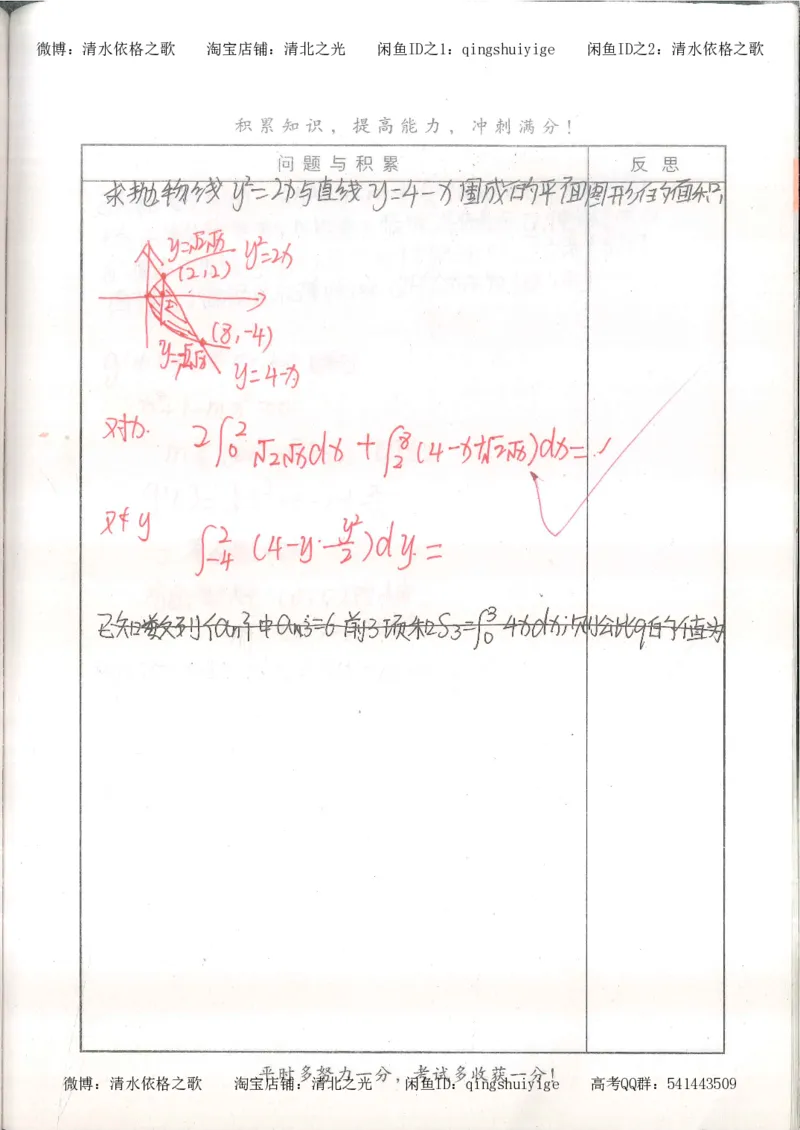 微博：清水依格之歌 淘宝店铺：清北之光 闲鱼ID之1：qingshuiyige 闲鱼ID之2：清水依格之歌
积累知识，提高能力，冲刺满分！
问题与积累 反思
求抛物线 y²=2x与直线 y=4-x 围成的平面图形的面积
y=√2√x y²=2x
(2,2)
(8,-4)
y=-√2√x
y=4-x
对x.
2∫₀² √2√x dx + ∫₂⁸ (4-x+√2√x)dx=
对y
∫₋₄² (4-y-y²/2)dy=
已知数列{an}中a3=6前3项和S3=∫₀³ 4xdx,则公比q的值为
平时多努力一分，考试多收获一分！
微博：清水依格之歌 淘宝店铺：清北之光 闲鱼ID：qingshuiyige 高考QQ群：541443509